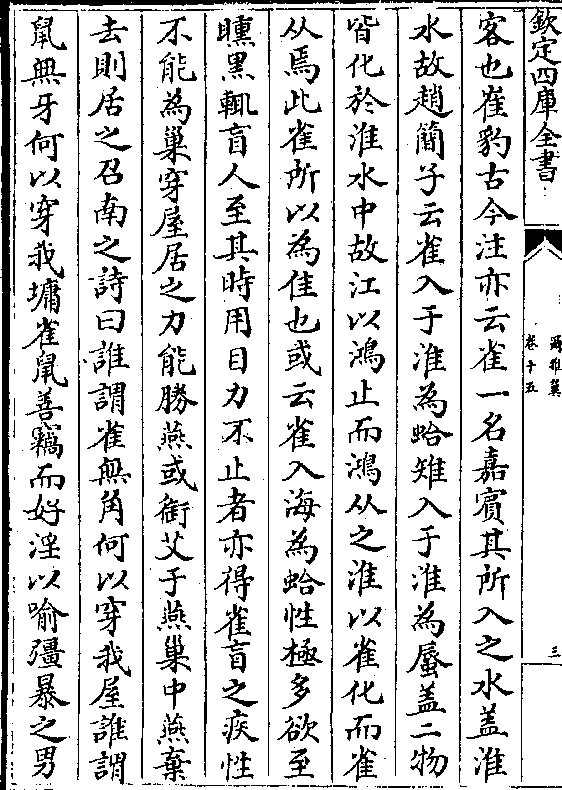 欽定四庫全書
爾雅翼
卷十五
三
客也崔豹古今注亦云雀一名嘉賓其所入之水蓋淮
水故趙簡子云雀入于淮為蛤雉入于淮為蜃蓋二物
皆化於淮水中故江以鴻止而鴻从之淮以雀化而雀
从焉此雀所以為隹也或云雀入海為蛤性極多欲至
曛黑輒盲人至其時用目力不止者亦得雀盲之疾性
不能為巢穿屋居之力能勝燕或銜艾于燕巢中燕棄
去則居之召南之詩曰誰謂雀無角何以穿我屋誰謂
鼠無牙何以穿我墉雀鼠善竊而好淫以喻彊暴之男